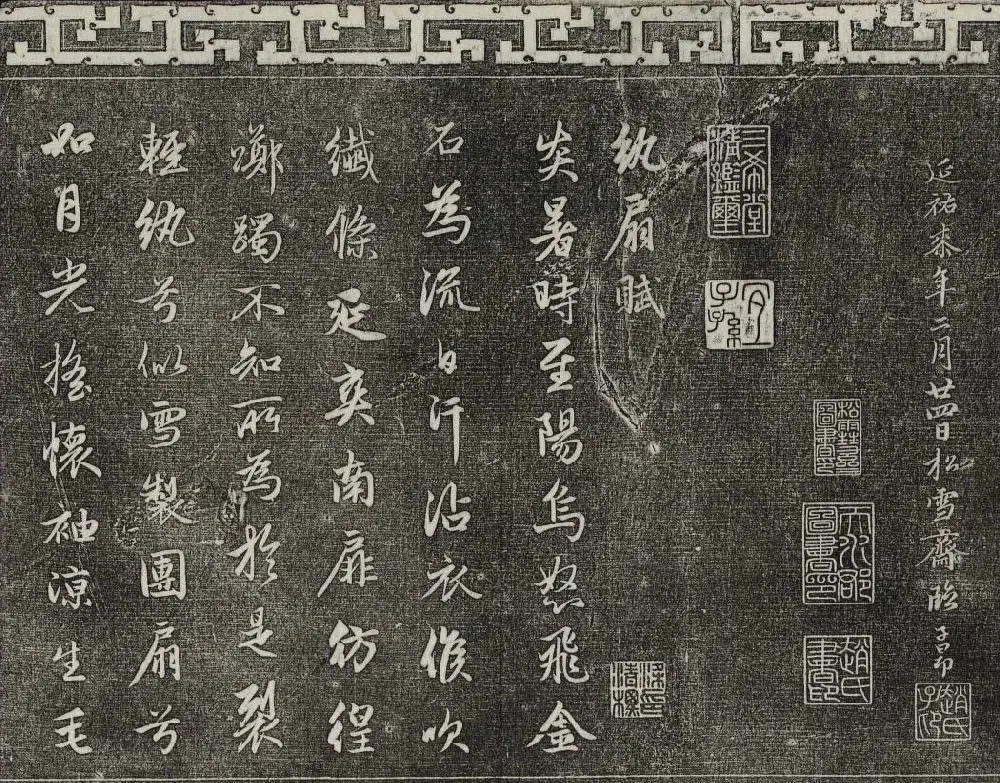 延祐柒年二月廿四日松雪齋臨子昂
趙氏子昂
松雪齋圖書印
天水郡圖書印
趙氏書印
三希堂精鑑璽
宜子孫
紈扇賦
炎暑時至陽烏怒飛金
石為流白汗沾衣候吹
纖條延爽南扉彷徨
躑躅不知所為於是裂
輕紈兮似雪製團扇兮
如月光搖懷袖涼生毛